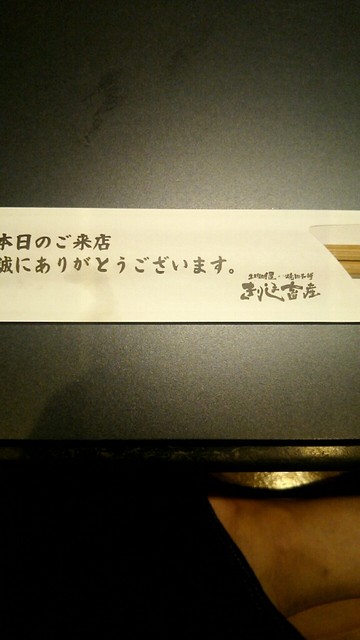 本日のご来店
誠にありがとうございます。
畜産